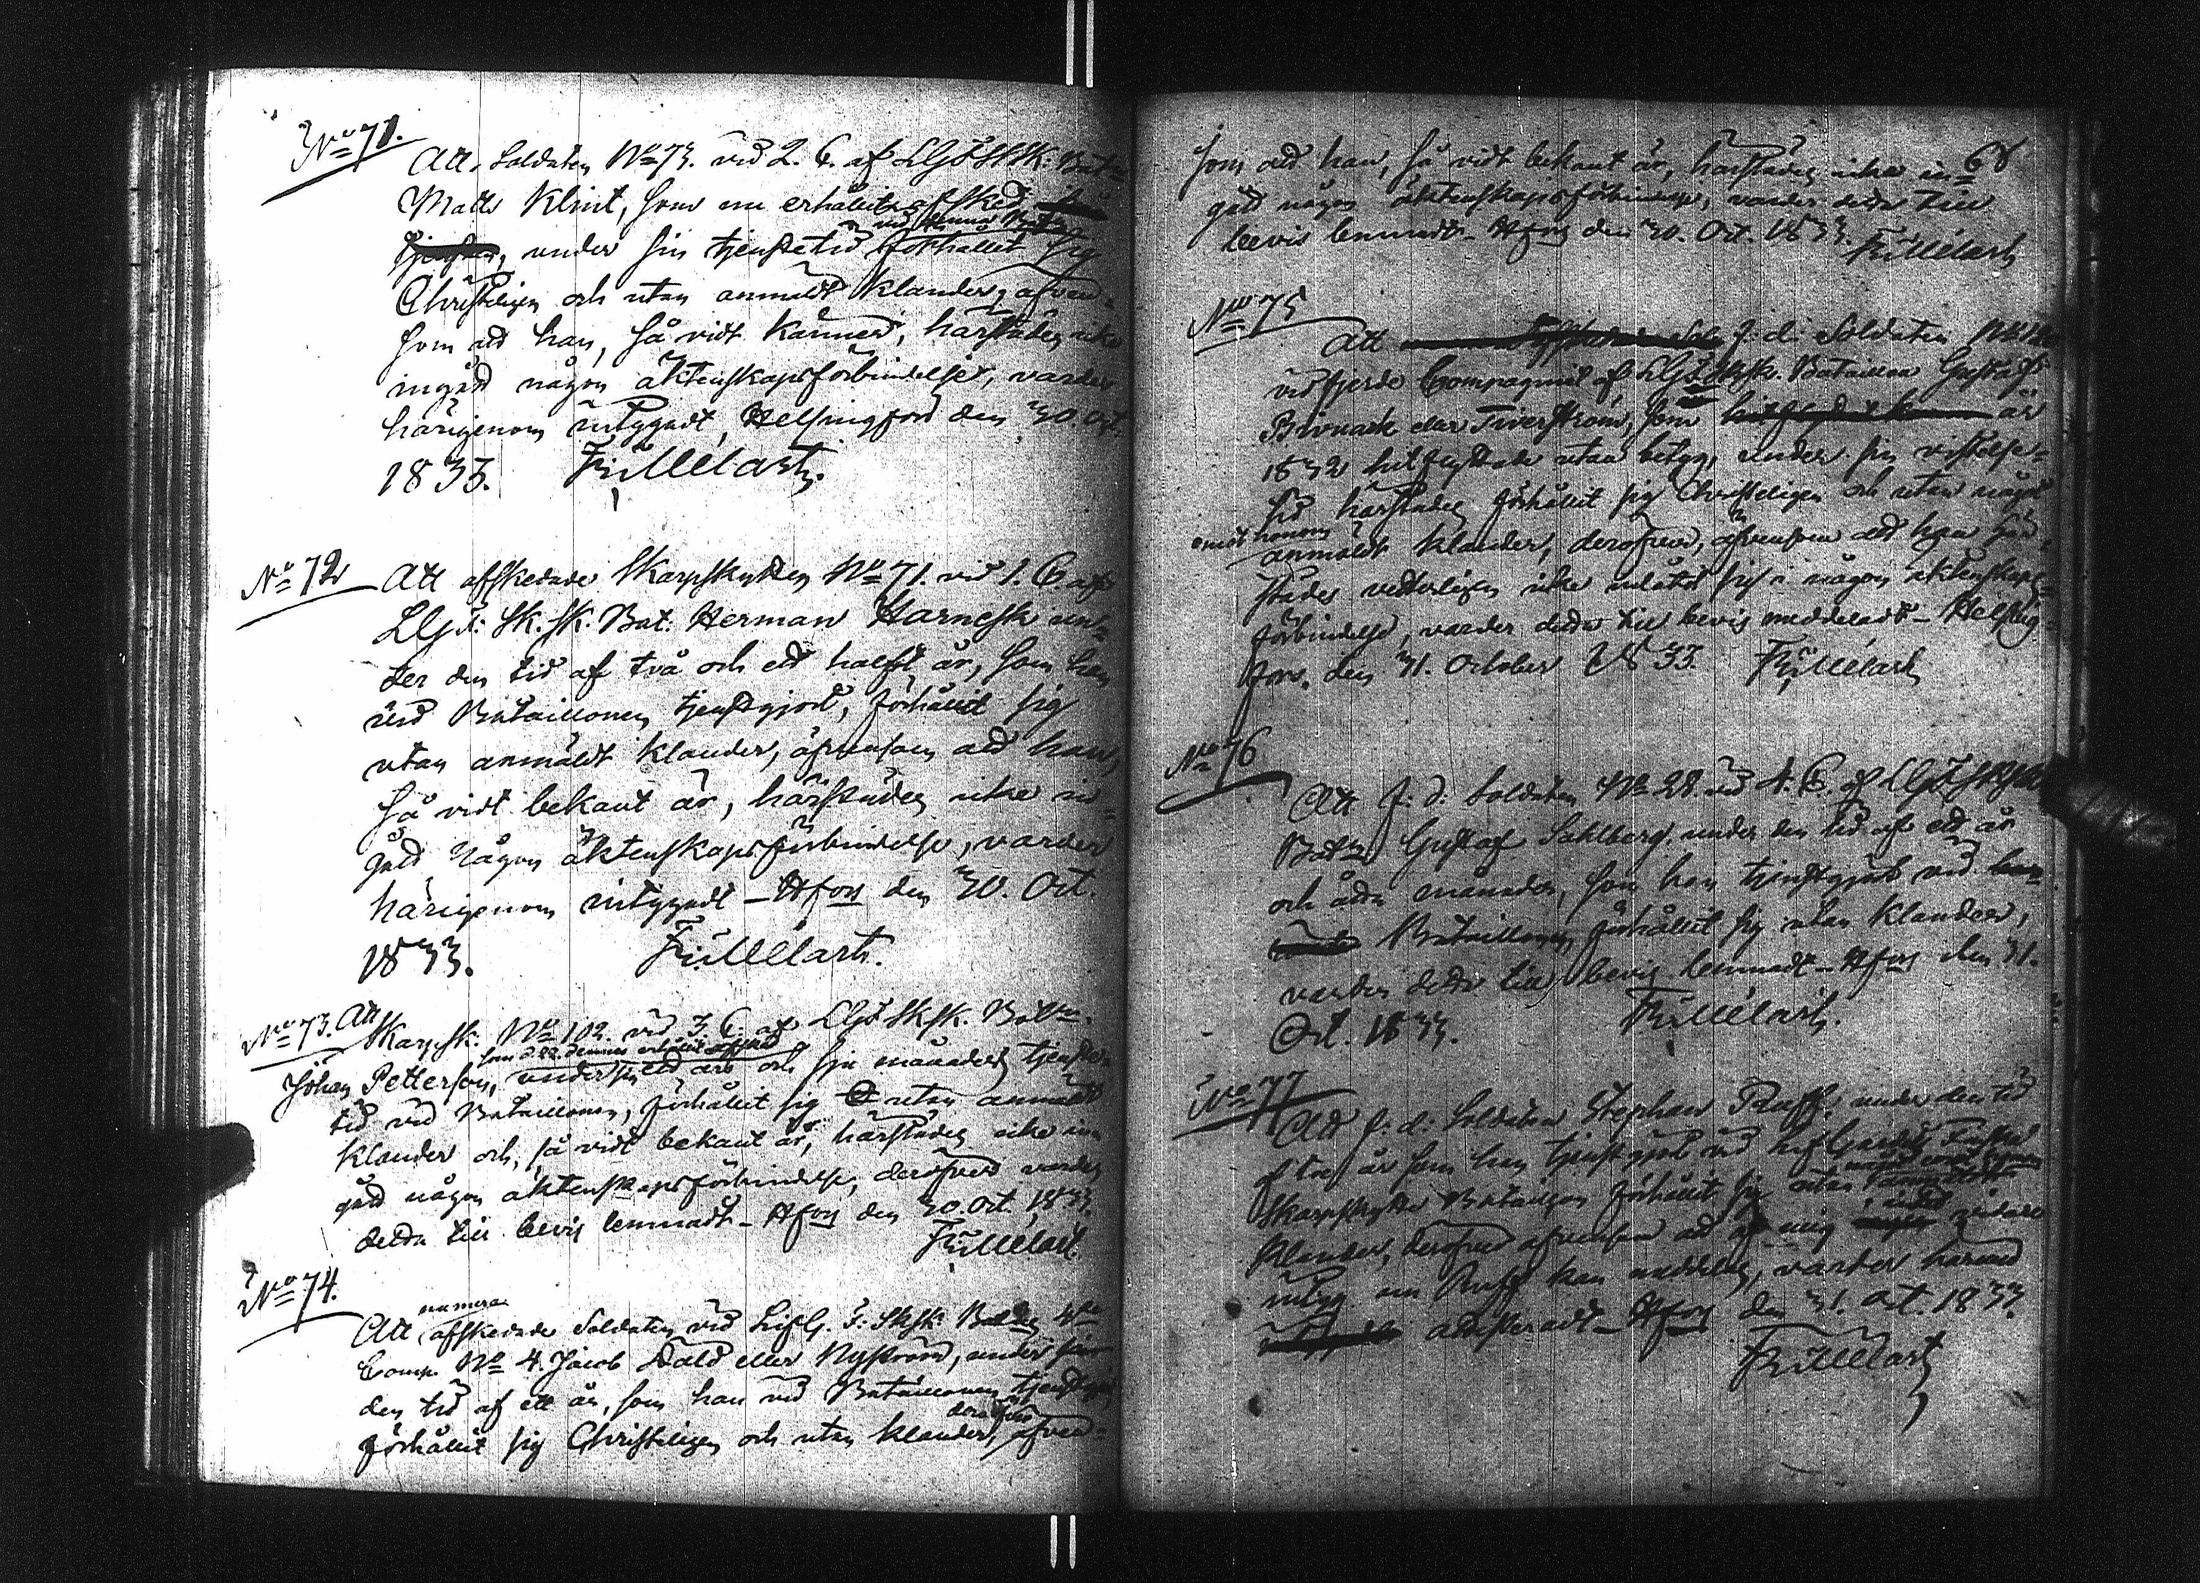 No 71.
Att Soldaten No 73. vid 2. C. af LGFSkSk. Bat:
Matts Klint, som nu erhållit afsked
vid denna Bataillon
under sin tjenstetid förhållit sig
Christeligen och utan anmäldt klander, äfven-
som att han, så vidt kännes, härstädes icke
ingått någon äktenskapsförbindelse, varder
härigenom intygadt, Helsingfors den 30. Oct.
1833.
No 72
Att afskedade Skarpskytten No 71. vid 1. C. af
LGF: Sk. Sk. Bat: Herman Harnesk un-
der den tid af två och ett halft år, som han
vid Bataillonen tjenstgjort, förhållit sig
utan anmäldt klander, äfvensom att han,
så vidt bekant är, härstädes icke in-
gått någon äktenskapsförbindelse, varder
härigenom intygadt – Hfors den 30. Oct.
1833.
No 73. Att
Skarpsk. No 102. vid 3. C. af LGF SkSk. Bat:n
som d. 22. dennes erhållit afsked
Johan Petterson, under sin ett års och sju månaders tjenste-
tid vid Bataillonen, förhållit sig utan anmäldt
klander och, så vidt bekant är, härstädes icke in-
gått någon äktenskapsförbindelse, deröfver varder
detta till bevis lemnadt – Hfors den 30. Oct. 1833.
No 74.
numera
Att afskedade Soldaten vid LifG. F: SkSk. Bat:n 4de
Comp. No 4. Jacob Dald eller Nyström, under
den tid af ett år, som han vid Bataillonen tjenstgjort
deröfver
förhållit sig Christeligen och utan klander, äfven-
68
som att han, så vidt bekant är, härstädes icke in-
gått någon äktenskapsförbindelse, varder detta till
bevis lemnadt – Hfors den 30. Oct. 1833.
No 75
Att f. d. Soldaten No
vid fjerde Compagniet af LGFSkSk. Bataillon Gustaf
eller Tiverström, som år
1832 hitflyttade utan betyg, under sin vistelse-
tid härstädes förhållit sig Christeligen och utan något
emot honom
anmäldt klander, deröfver, äfvensom att han här-
städes vetterligen icke inlåtit sig i någon äktenskaps-
förbindelse, varder detta till bevis meddeladt – Helsing-
fors, den 31. October 1833.
No 76
Att f: d: Soldaten No 28. vid 4. C. af LGFSkSk
Bat:n Gustaf Sahlberg, under den tid af ett år
och åtta månader, som han tjenstgjort vid
Bataillonen förhållit sig utan klander,
varder detta till bevis lemnadt – Hfors den 31.
Oct. 1833.
No 77
Att f: d: Soldaten Stephan Ruff, under den tid
af tre år som han tjenstgjort vid Lif Gardets Finska
Skarpskytte Bataillon förhållit sig utan anmäldt
klander, deröfver äfvensom att af mig intet vidare
intyg om Ruff kan meddelas, varder härmed
attesteradt – Hfors den 31. Oct. 1833.